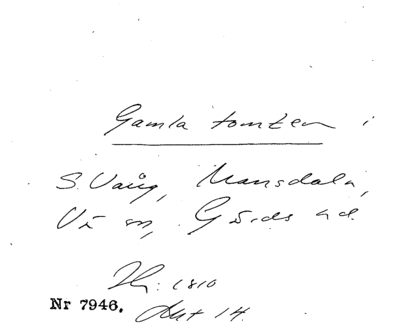 Gamla tomten i
S. Vång, Mansdala,
Vä sn, Gärds hd.
1810
Nr 7946. Akt 14.